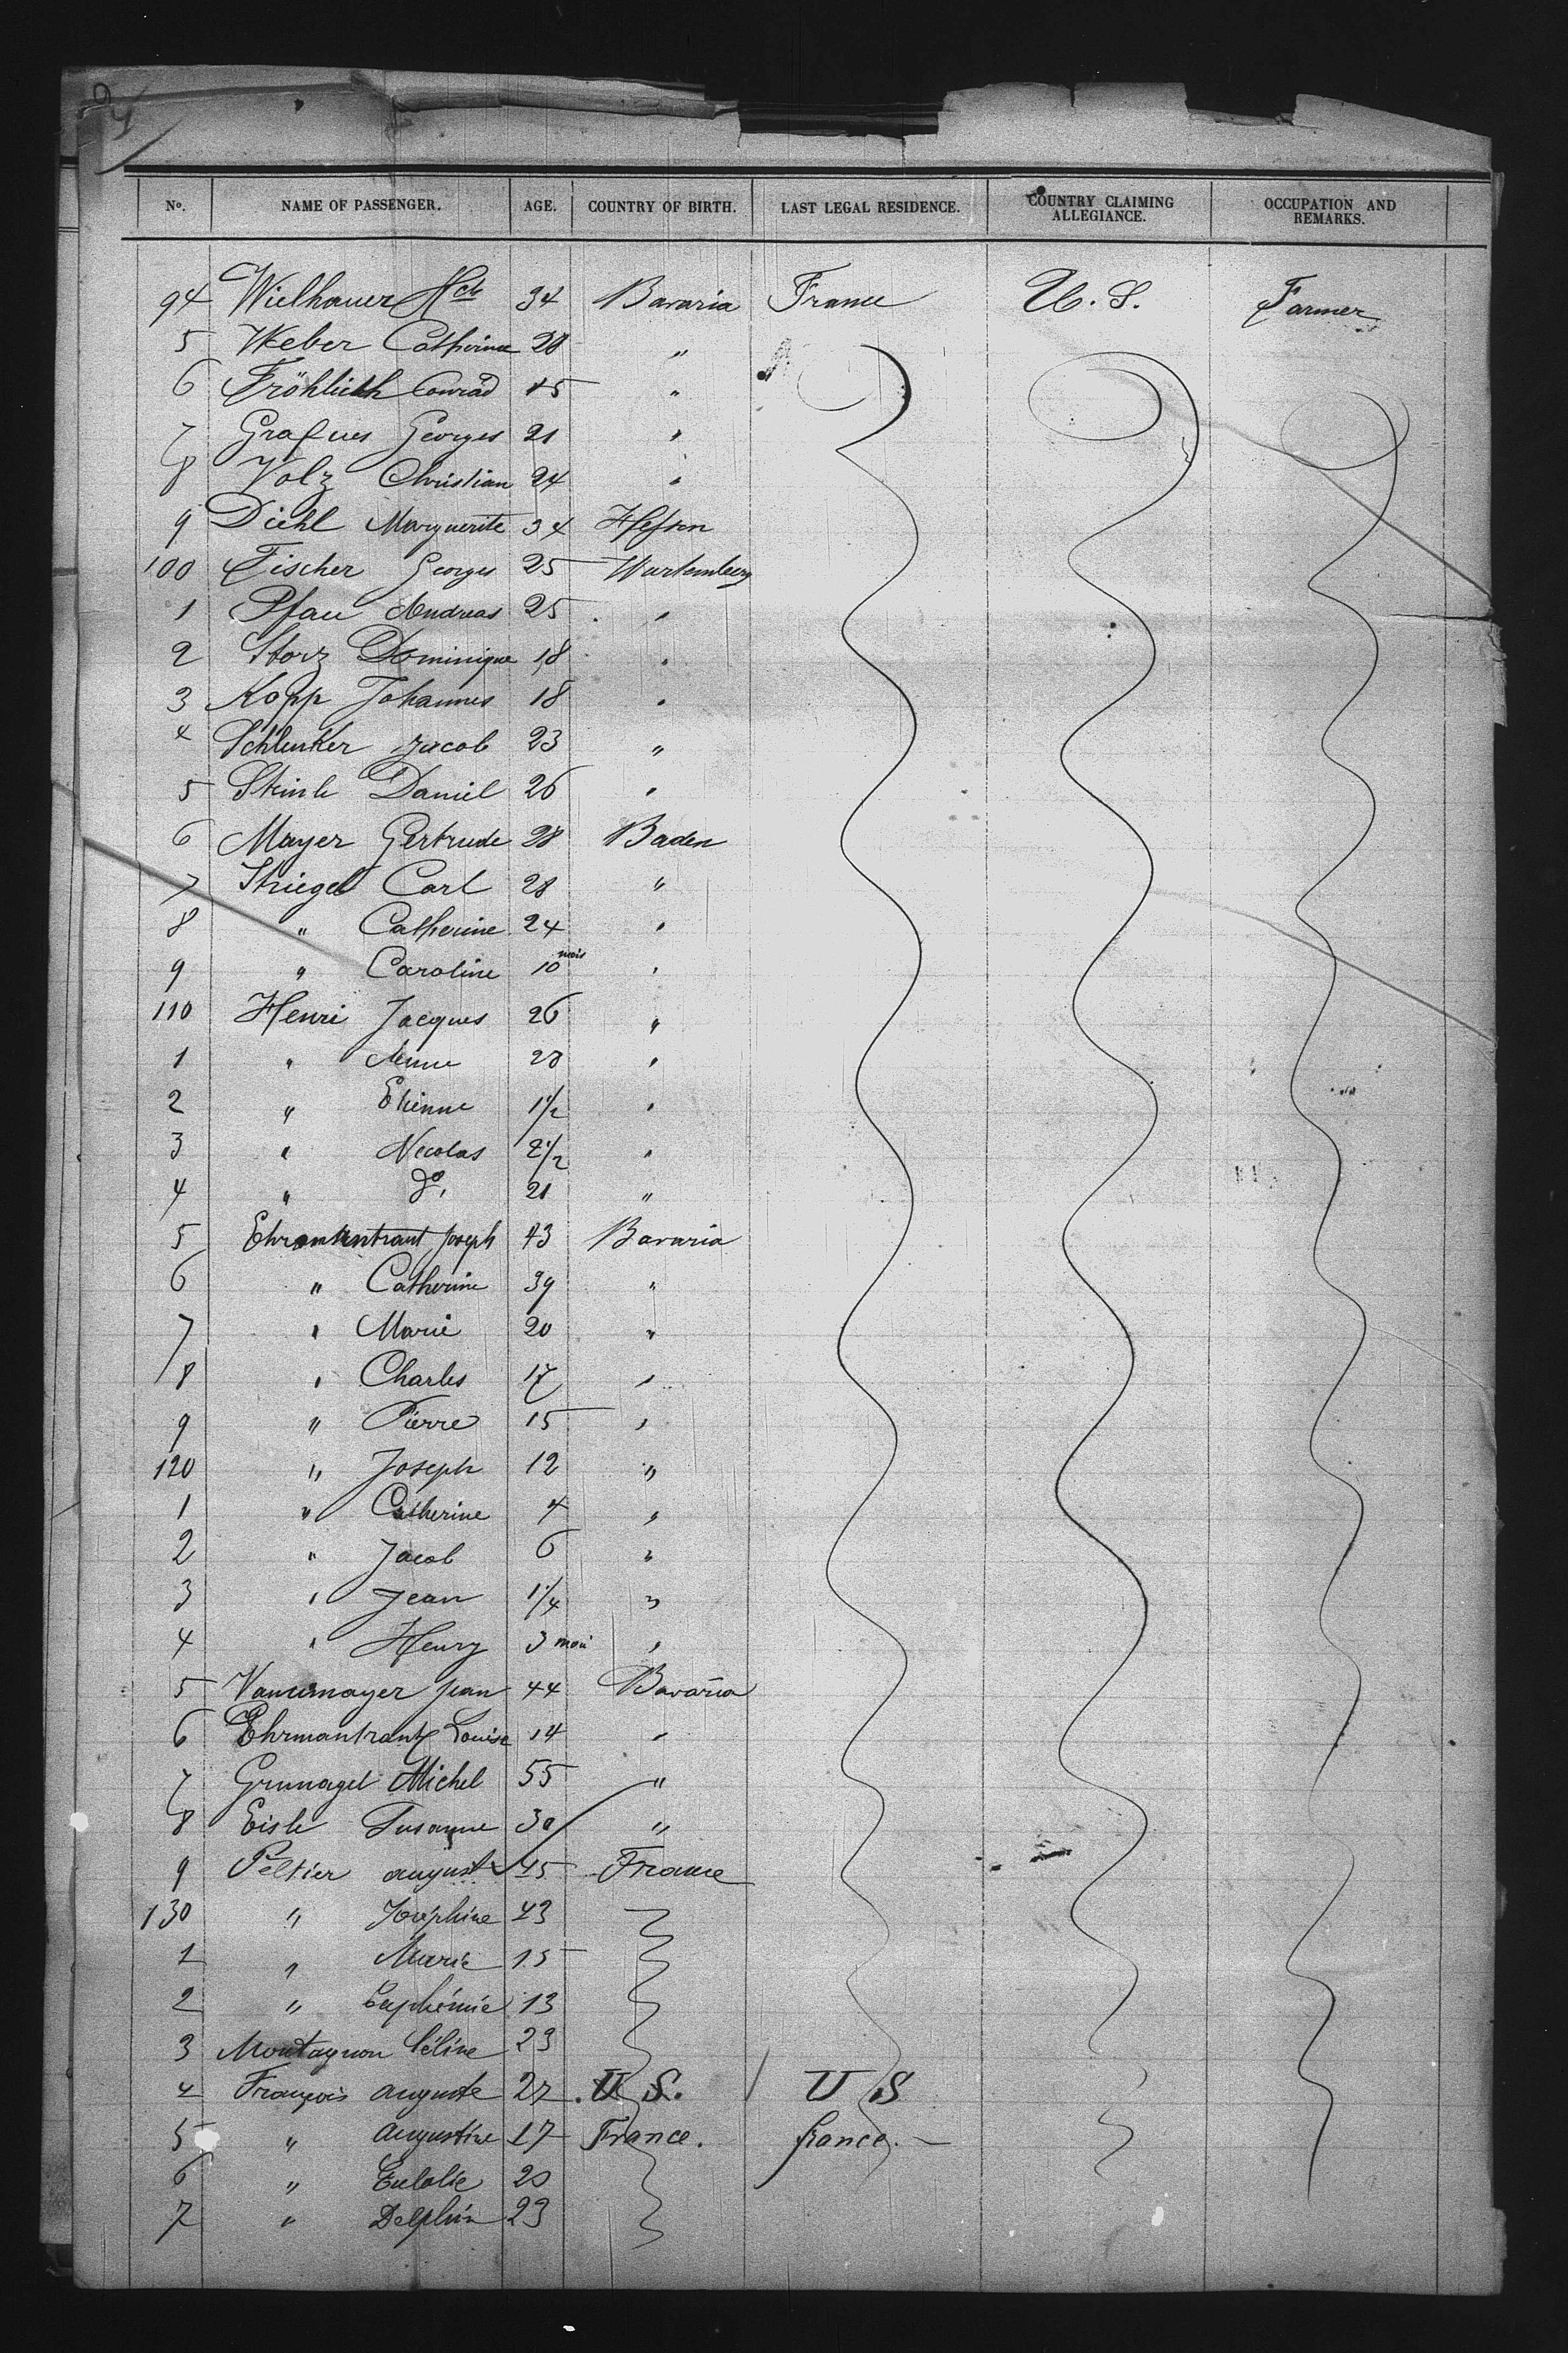 94
No. NAME OF PASSENGER. AGE. COUNTRY OF BIRTH. LAST LEGAL RESIDENCE. COUNTRY CLAIMING ALLEGIANCE. OCCUPATION AND REMARKS.
94 Wielhauer 34 Bavaria France U. S. Farmer
5 Weber Catherine 28 "
6 Fröhlich Conrad 45 "
7 Georges 21 "
8 Volz Christian 24 "
9 Diehl Marguerite 34 Hessen
100 Fischer Georges 25 Wurtemberg
1 Pfau Andreas 25 "
2 Storz Dominique 18 "
3 Kopp Johannes 18 "
4 Schlenker Jacob 23 "
5 Daniel 26 "
6 Mayer Gertrude 28 Baden
7 Striegel Carl 28 "
8 " Catherine 24 "
9 " Caroline 10 mois "
110 Henri Jacques 26 "
1 " Anne 28 "
2 " Etienne 1 1/2 "
3 " Necolas 2 1/2 "
4 " do. 21 "
5 Joseph 43 Bavaria
6 " Catherine 39 "
7 " Marie 20 "
8 " Charles 17 "
9 " Pierre 15 "
120 " Joseph 12 "
1 " Catherine 4 "
2 " Jacob 6 "
3 " Jean 1 1/4 "
4 " Henry 3 moi "
5 Jean 44 Bavaria
6 Ehrmantraut Louise 14 "
7 Grunagel Michel 55 "
8 Eisle Susanne 30 "
9 Peltier auguste 45 France
130 " Joséphine 43
1 " Marie 15
2 " Euphémie 13
3 Montagnon Céline 23
4 François auguste 27 U S. U S
5 " augustine 17 France. france. —
6 " Eulalie 20
7 " Delphin 23